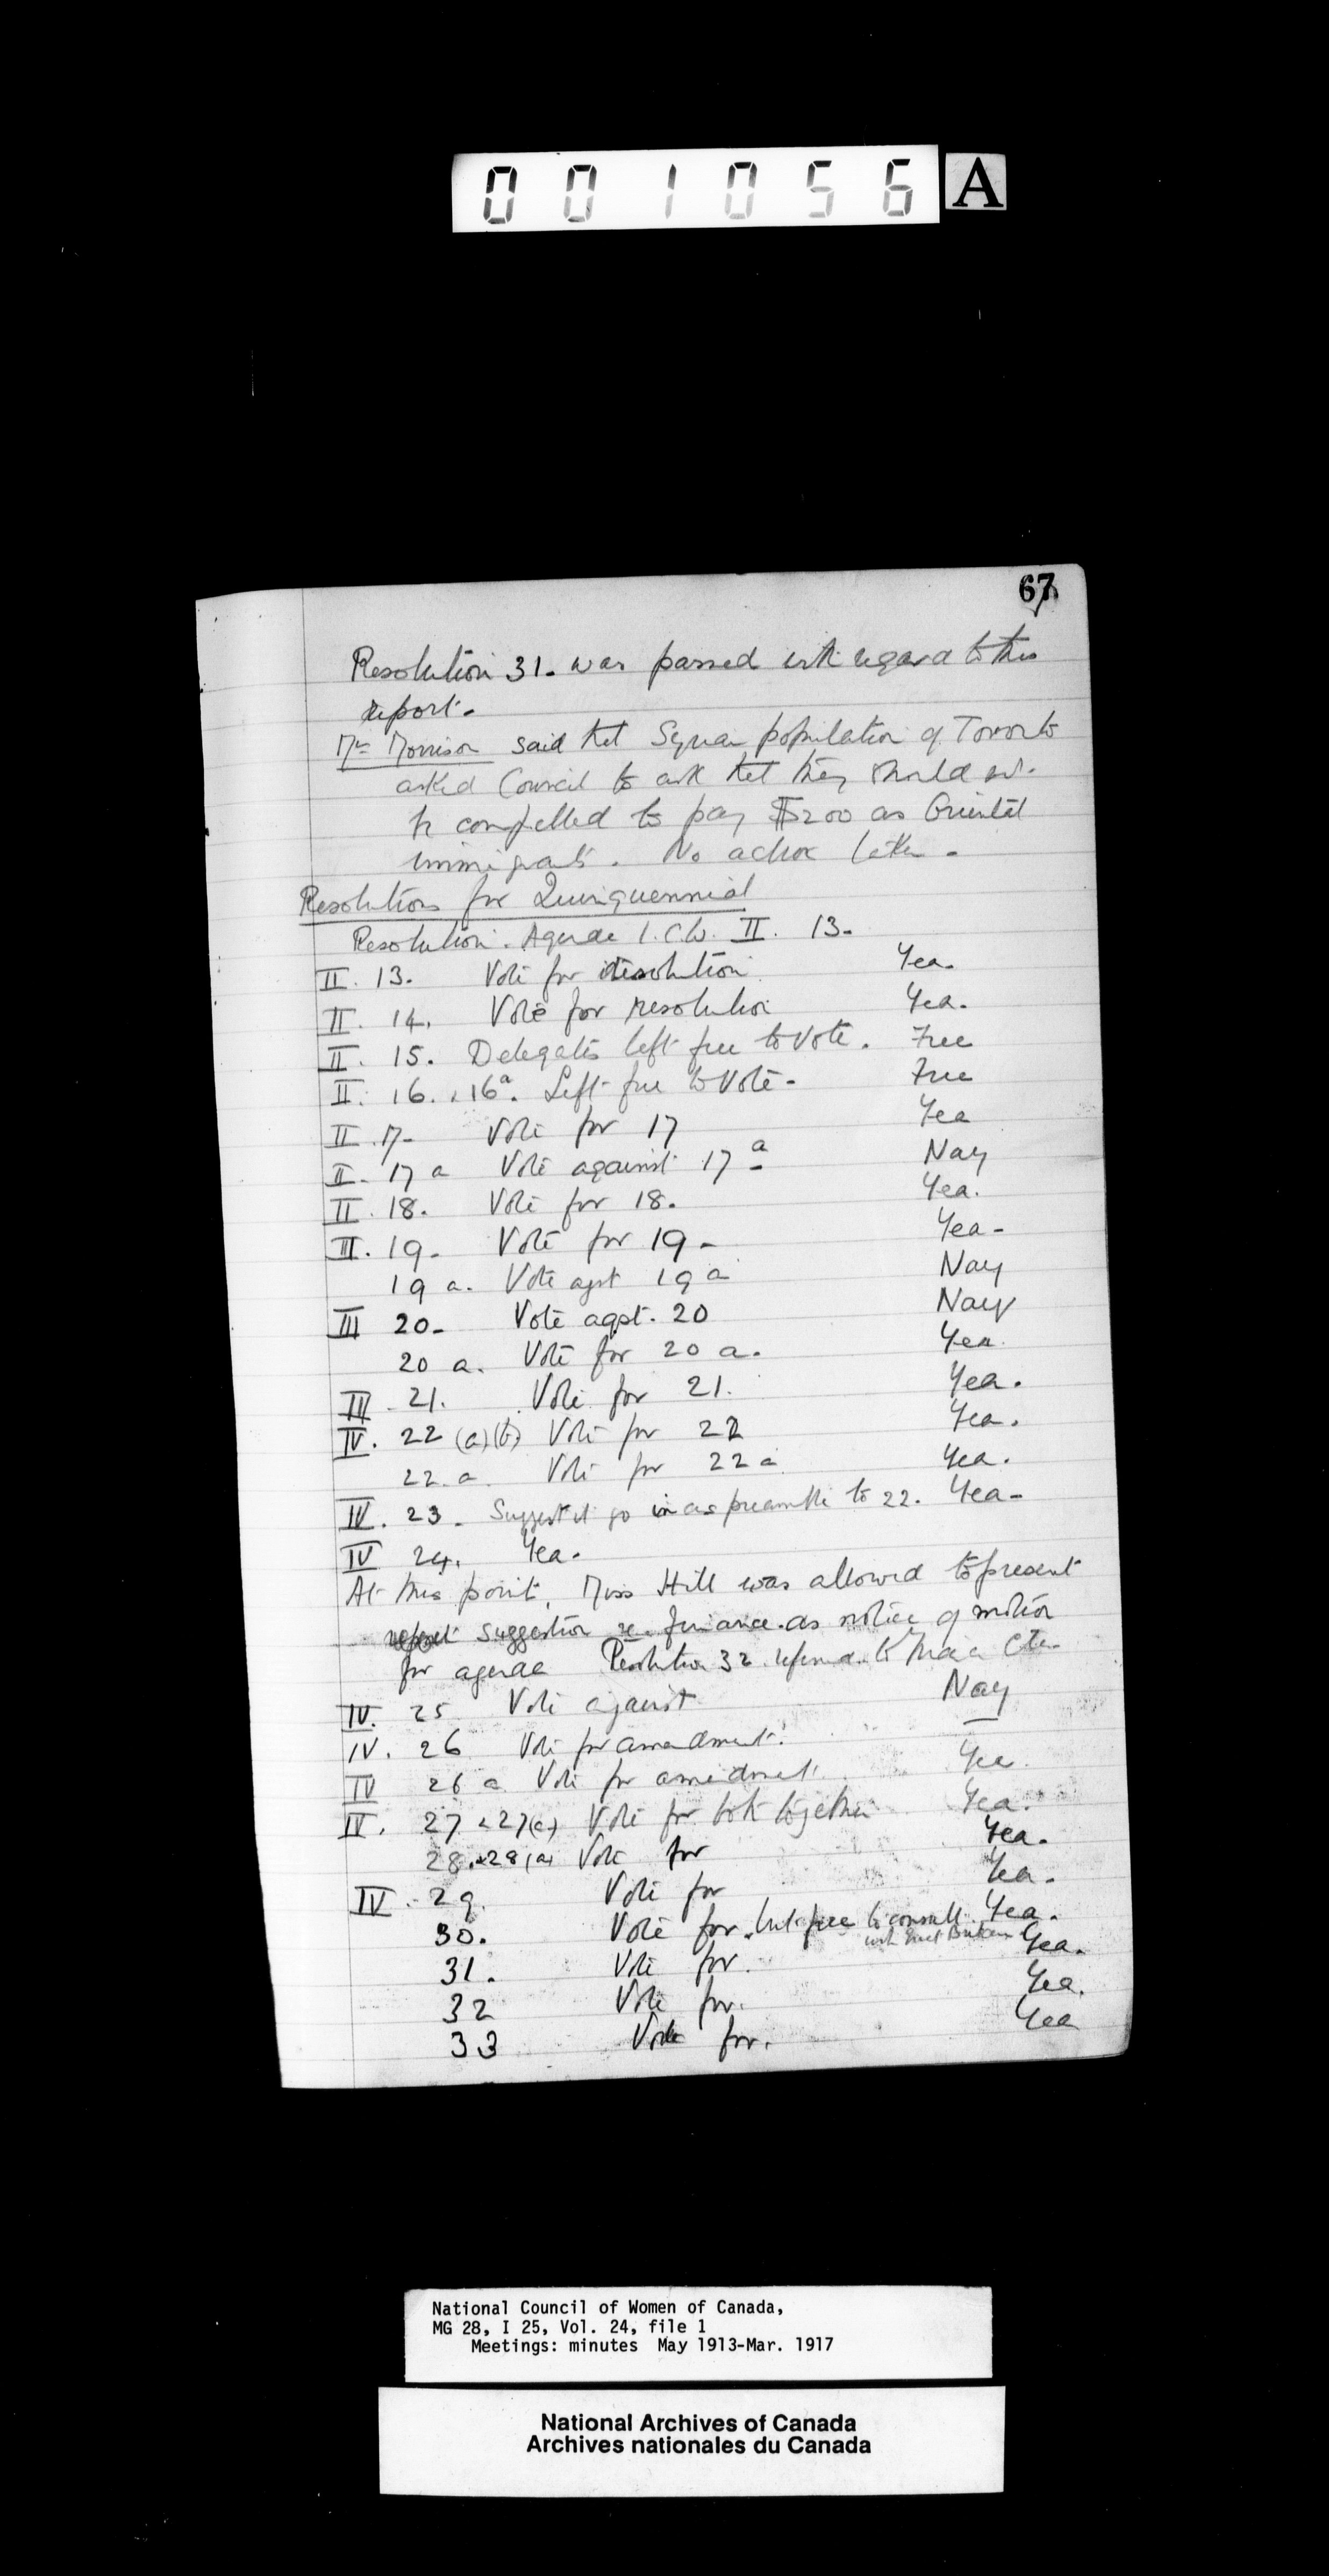 001056 A
67
Resolution 31. was passed with regard to this
report.
Mrs Morrison said that Syrian population of Toronto
asked Council to ask that they should not.
be compelled to pay $200 as Oriental
immigrants. No action taken.
Resolutions for Quinquennial
Resolution. Agenda I.C.W. II. 13.
II. 13. Vote for resolution Yea.
II. 14. Vote for resolution Yea.
II. 15. Delegates left free to vote. Free
II. 16. & 16a. Left free to vote. Free
II. 17. Vote for 17 Yea
II. 17 a Vote against 17 a Nay
II. 18. Vote for 18. Yea.
III. 19. Vote for 19. Yea.
19 a. Vote agst 19 a Nay
III 20. Vote agst. 20 Nay
20 a. Vote for 20 a. Yea
III. 21. Vote for 21. Yea.
IV. 22 (a)(b) Vote for 22 Yea.
22. a Vote for 22 a Yea.
IV. 23. Suggest it go in as preamble to 22. Yea.
IV 24. Yea.
At this point, Miss Hill was allowed to present
suggestion re. finance. as notice of motion
for agenda Resolution 32. referred to Cte.
IV. 25 Vote against Nay
IV. 26 Vote for amendment. —
IV 26 a Vote for amendment. Yea.
IV. 27 & 27(a) Vote for both together Yea.
28. & 28(a) Vote for Yea.
IV. 29. Vote for Yea.
30. Vote for. but free to consult Yea.
with Great Britain
31. Vote for. Yea.
32 Vote for. Yea.
33 Vote for. Yea
National Council of Women of Canada,
MG 28, I 25, Vol. 24, file 1
Meetings: minutes May 1913-Mar. 1917
National Archives of Canada
Archives nationales du Canada